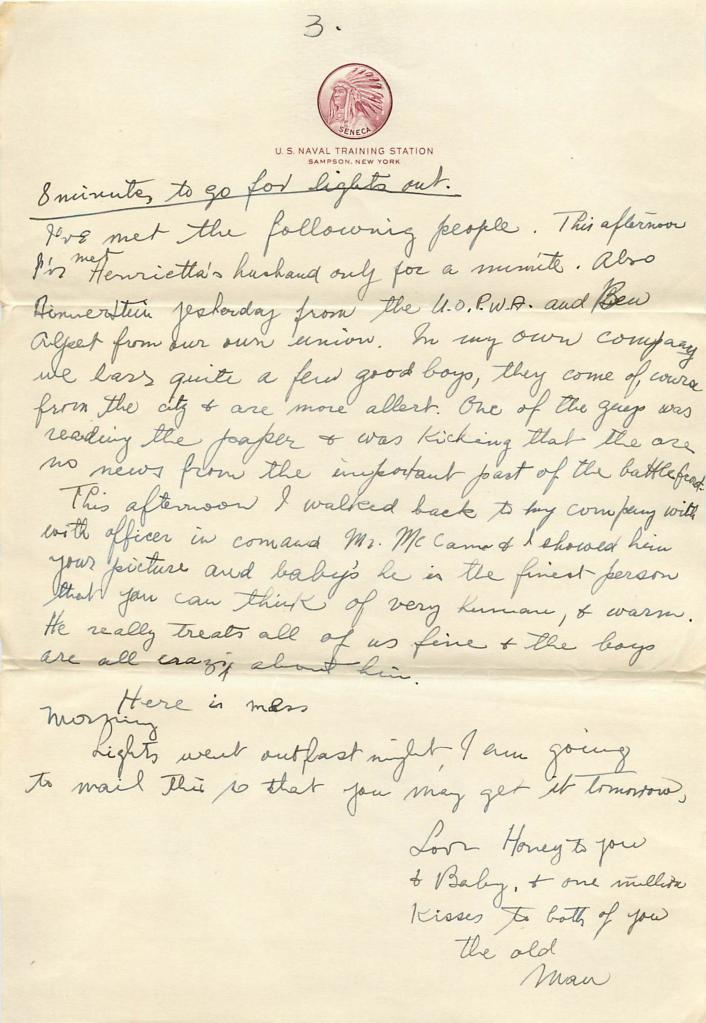 3.
SENECA
U.S. NAVAL TRAINING STATION
SAMPSON, NEW YORK
8 minutes to go for lights out.
I've met the following people. This afternoon
I've met Henrietta's husband only for a minute. Also
yesterday from the U.O.P.W.A. and Ben
Alpet from our own union. In my own company
we have quite a few good boys, they come of course
from the city & are more allert. One of the guys was
reading the paper & was kicking that the are
no news from the important part of the battle front.
This afternoon I walked back to my company with
with officer in comand Mr. McCann & I showed him
your picture and baby's he is the finest person
that you can think of very humane, & warm.
He really treats all of us fine & the boys
are all crazy about him.
Here is mess
Morning
Lights went out last night, I am going
to mail this so that you may get it tomorrow,
Love Honey to you
& Baby, & one million
Kisses to both of you
the old
Man